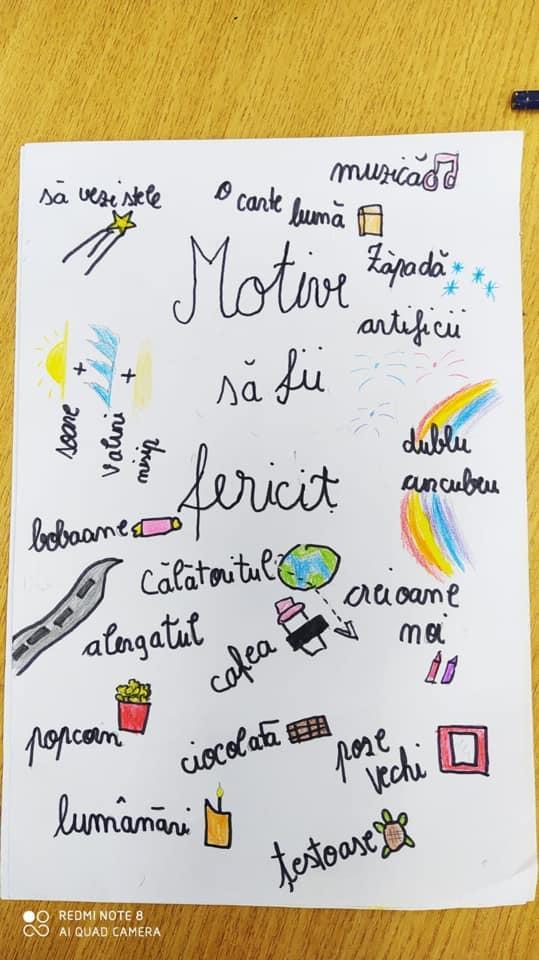 muzică
să vezi stele
O carte bună
Motive
Zăpadă
artificii
să fii
soare + valuri + nisip
dublu
curcubeu
fericit
bomboane
Călătoritul
creioane
noi
alergatul
cafea
popcorn
ciocolată
poze
vechi
lumânări
țestoase
REDMI NOTE 8
AI QUAD CAMERA